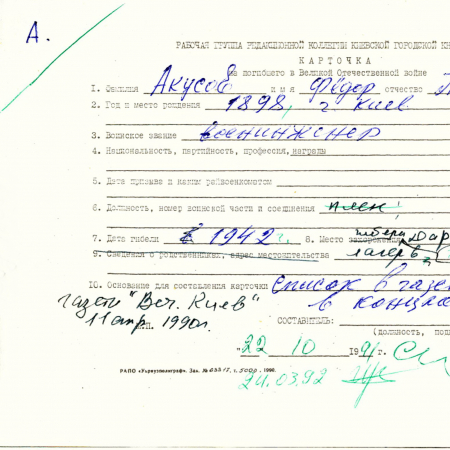 А.
РАБОЧАЯ ГРУППА РЕДАКЦИОННОЙ КОЛЛЕГИИ КИЕВСКОЙ ГОРОДСКОЙ КН
КАРТОЧКА
на погибшего в Великой Отечественной войне
1. Фамилия Акусов имя Фёдор отчество
2. Год и место рождения 1898, г Киев
3. Воинское звание военинженер
4. Национальность, партийность, профессия, награды
5. Дата призыва и каким райвоенкоматом
6. Должность, номер воинской части и соединения плен
7. Дата гибели 1942 г. 8. Место захоронения Дар
9. Сведения о родственниках, адрес местожительства лагерь
10. Основание для составления карточки список в газе
газети "Веч. Киев" в конц
11 апр. 1990г.
СОСТАВИТЕЛЬ:
(должность, под
"22 10 1991 г.
24.03.92
РАПО «Укрвузполиграф». Зак. № т. 5000. 1990.